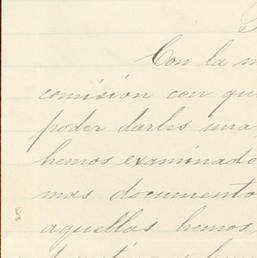 Con la m
comision con qu
poder darles una
hemos examinado
mas documento
aquellas hemos